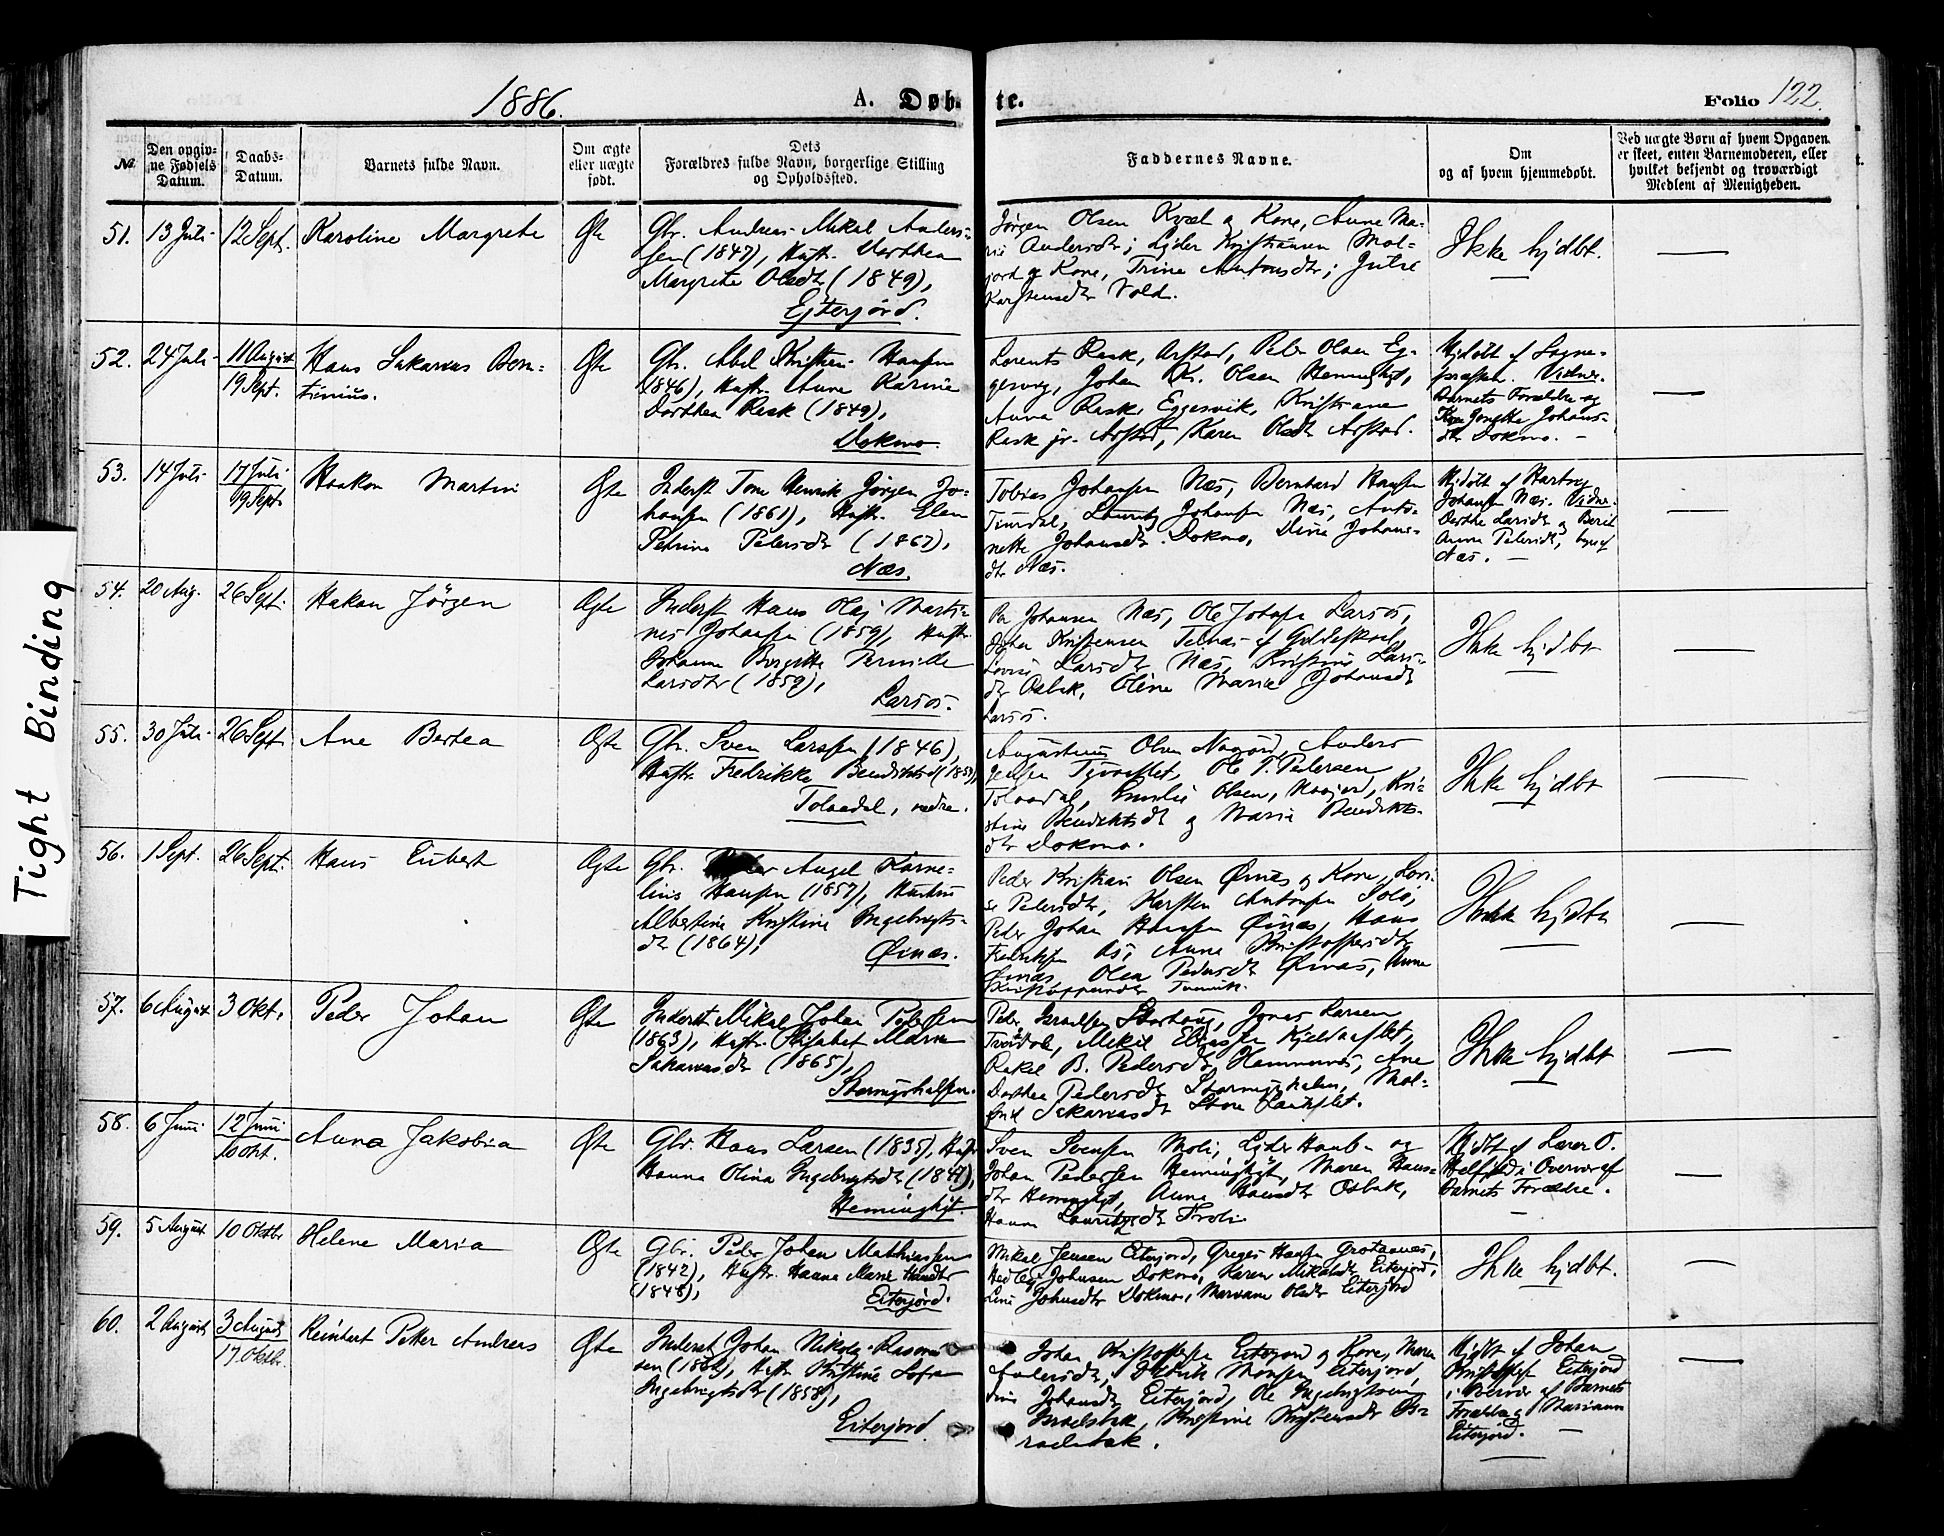 1886.
A. Døb-
te.
Folio 122.
Tight Binding
№
Den opgiv-
ne Fødsels
Datum.
Daabs-
Datum.
Barnets fulde Navn.
Om ægte
eller uægte
født.
Dets
Forældres fulde Navn, borgerlige Stilling
og Opholdssted.
Faddernes Navne.
Om
og af hvem hjemmedøbt.
Ved uægte Børn af hvem Opgaven
er skeet, enten Barnemoderen, eller
hvilket bekjendt og troværdigt
Medlem af Menigheden.
51. 13 Juli 12 Sept. Karoline Margrete Ægte
Gbr. Andreas Mikal Anders-
sen (1847), Hustr. Dorthea
Margrete Olsdtr (1849),
Ejterjord.
Jørgen Olsen Kvæl og Kone, Anne Ma-
rie Andersdtr; Lyder Kristiansen Mol-
jord og Kone, Trine Antonsdtr;
Karstensdtr Vold.
Ikke hjdbt.
52. 24 Juli 11 August
19 Sept. Hans Sakarias Ægte
Gbr. Abel Kristian Hansen
(1846), Hustr. Anne Karine
Dorthea Rask (1849),
Dokmo.
Lorents Rask, Arstad, Peder Olsen Eg-
gesvig, Johan Kr. Olsen
Anna Rask, Eggesvik, Kristiane
Rask jr. Arstad, Karen Olsdtr Arstad.
Hjdøbt af Sogne-
præsten. Vidner.
Barnets Forældre og
Johans-
dtr Dokmo.
53. 14 Juli 17 Juli
19 Sept. Haakon Martin Ægte
Inderst Tom Henrik Jørgen Jo-
hansen (1861), Hustr. Elen
Petrine Petersdtr (1867),
Næs.
Tobias Johansen Næs, Bernhard Hansen
Lauritz Johansen Næs, Anto-
nette Johansdtr Dokmo, Dina Johans-
dtr Næs.
Hjdøbt af Hartvig
Johansen Næs. Vidner
Dorthe Larsdtr og Berit
Anna Petersdtr, begge af
Næs.
54. 20 Aug. 26 Sept. Hakon Jörgen Ægte
Inderst Hans Olaj Marti-
nus Johansen (1859), Hustr.
Johanna Birgitte Pernille
Larsdtr (1859),
Larsos.
Per Johansen Næs, Ole Johansen Larsos,
Johan Kristensen Telnæs af Gildeskaal,
Lovise Larsdtr Næs, Kristine Lars-
dtr Osbak, Oline Maria Johansdtr
Larsos.
Ikke hjdbt
55. 30 Juli 26 Sept. Ane Bertea Ægte
Gbr. Sven Larssen (1846),
Hustr. Fredrikke Bendiktsdt (1853),
Tolaadal, nedre.
Augustinus Olsen Anders
Jensen Ole P. Pedersen
Tolaadal, Emilie Olsen, Kri-
stine Bendiktsdtr og Marie Bendikts-
dtr Dokmo.
Ikke hjdbt
56. 1 Sept. 26 Sept. Hans Eubert Ægte
Gbr. Peder Angel Korne-
lius Hansen (1857), Hustru
Albertine Kristine Ingebrigts-
dtr (1864),
Øines.
Peder Kristian Olsen Øines og Kone, Lovi-
se Petersdtr, Karsten Antonsen
Peder Johan Hansen Øines, Hans
Fredriksen Os, Anna Kristoffersdtr
Øines, Olea Pedersdtr Øines, Anna
Ikke hjdbt
57. 6 August 3 Okt. Peder Johan Ægte
Inderst Mikal Johan Pedersen
(1863), Hustr. Elisabet Maria
Sakariasdtr (1865),
Peder Israelsen Storhaug, Jonas Larsen
Mikal Eliassen
Rakel B. Pedersdtr Hammernes, Ane
Dorthea Pedersdtr Mol-
Sakariasdtr
Ikke hjdbt
58. 6 Juni 12 Juni
10 Okt. Anna Jakobia Ægte
Gbr. Hans Larsen (1835), Hustr.
Hanna Olina Ingebrigtsdtr (1847),
Heminghyt.
Sven Svensen Moli, og
Johan Pedersen Heminghyt, Maren Hans-
dtr Heminghyt, Anna Hansdtr Osbak,
Hanna Lauritzdtr Troli.
Hjdbt af Lærer O.
i Overvær af
Barnets Forældre.
59. 5 August 10 Oktbr Helene Maria Ægte
Gbr. Peder Johan Mathiassen
(1842), Hustr. Hanna Marie Hansdtr
(1848),
Eiterjord.
Mikal Jensen Eiterjord, Greges Hansen Grotaanæs,
Johnsen Dokmo, Karen Mikalsdtr Eiterjord,
Line Johnsdtr Dokmo, Mariane Olsdtr Eiterjord
Ikke hjdbt.
60. 2 August 3 August
17 Oktbr. Reinhart Petter Andreas Ægte
Inderst Johan Nikolaj Rasmus-
sen (1862), Hustr. Kristine Sofie
Ingebrigtsdtr (1858),
Eiterjord
Johan Kristoffersen Eiterjord og Kone, Maren
Andersdtr, Didrik Monsen Eiterjord,
Johansdtr Eiterjord, Ole Ingebrigtsen
Israelsbak, Kristine Kristensdtr Is-
raelsbak.
Hjdbt af Johan
Kristoffersen Eiterjord
i Overvær af Barnets
Forældre og Mariann
Eiterjord.